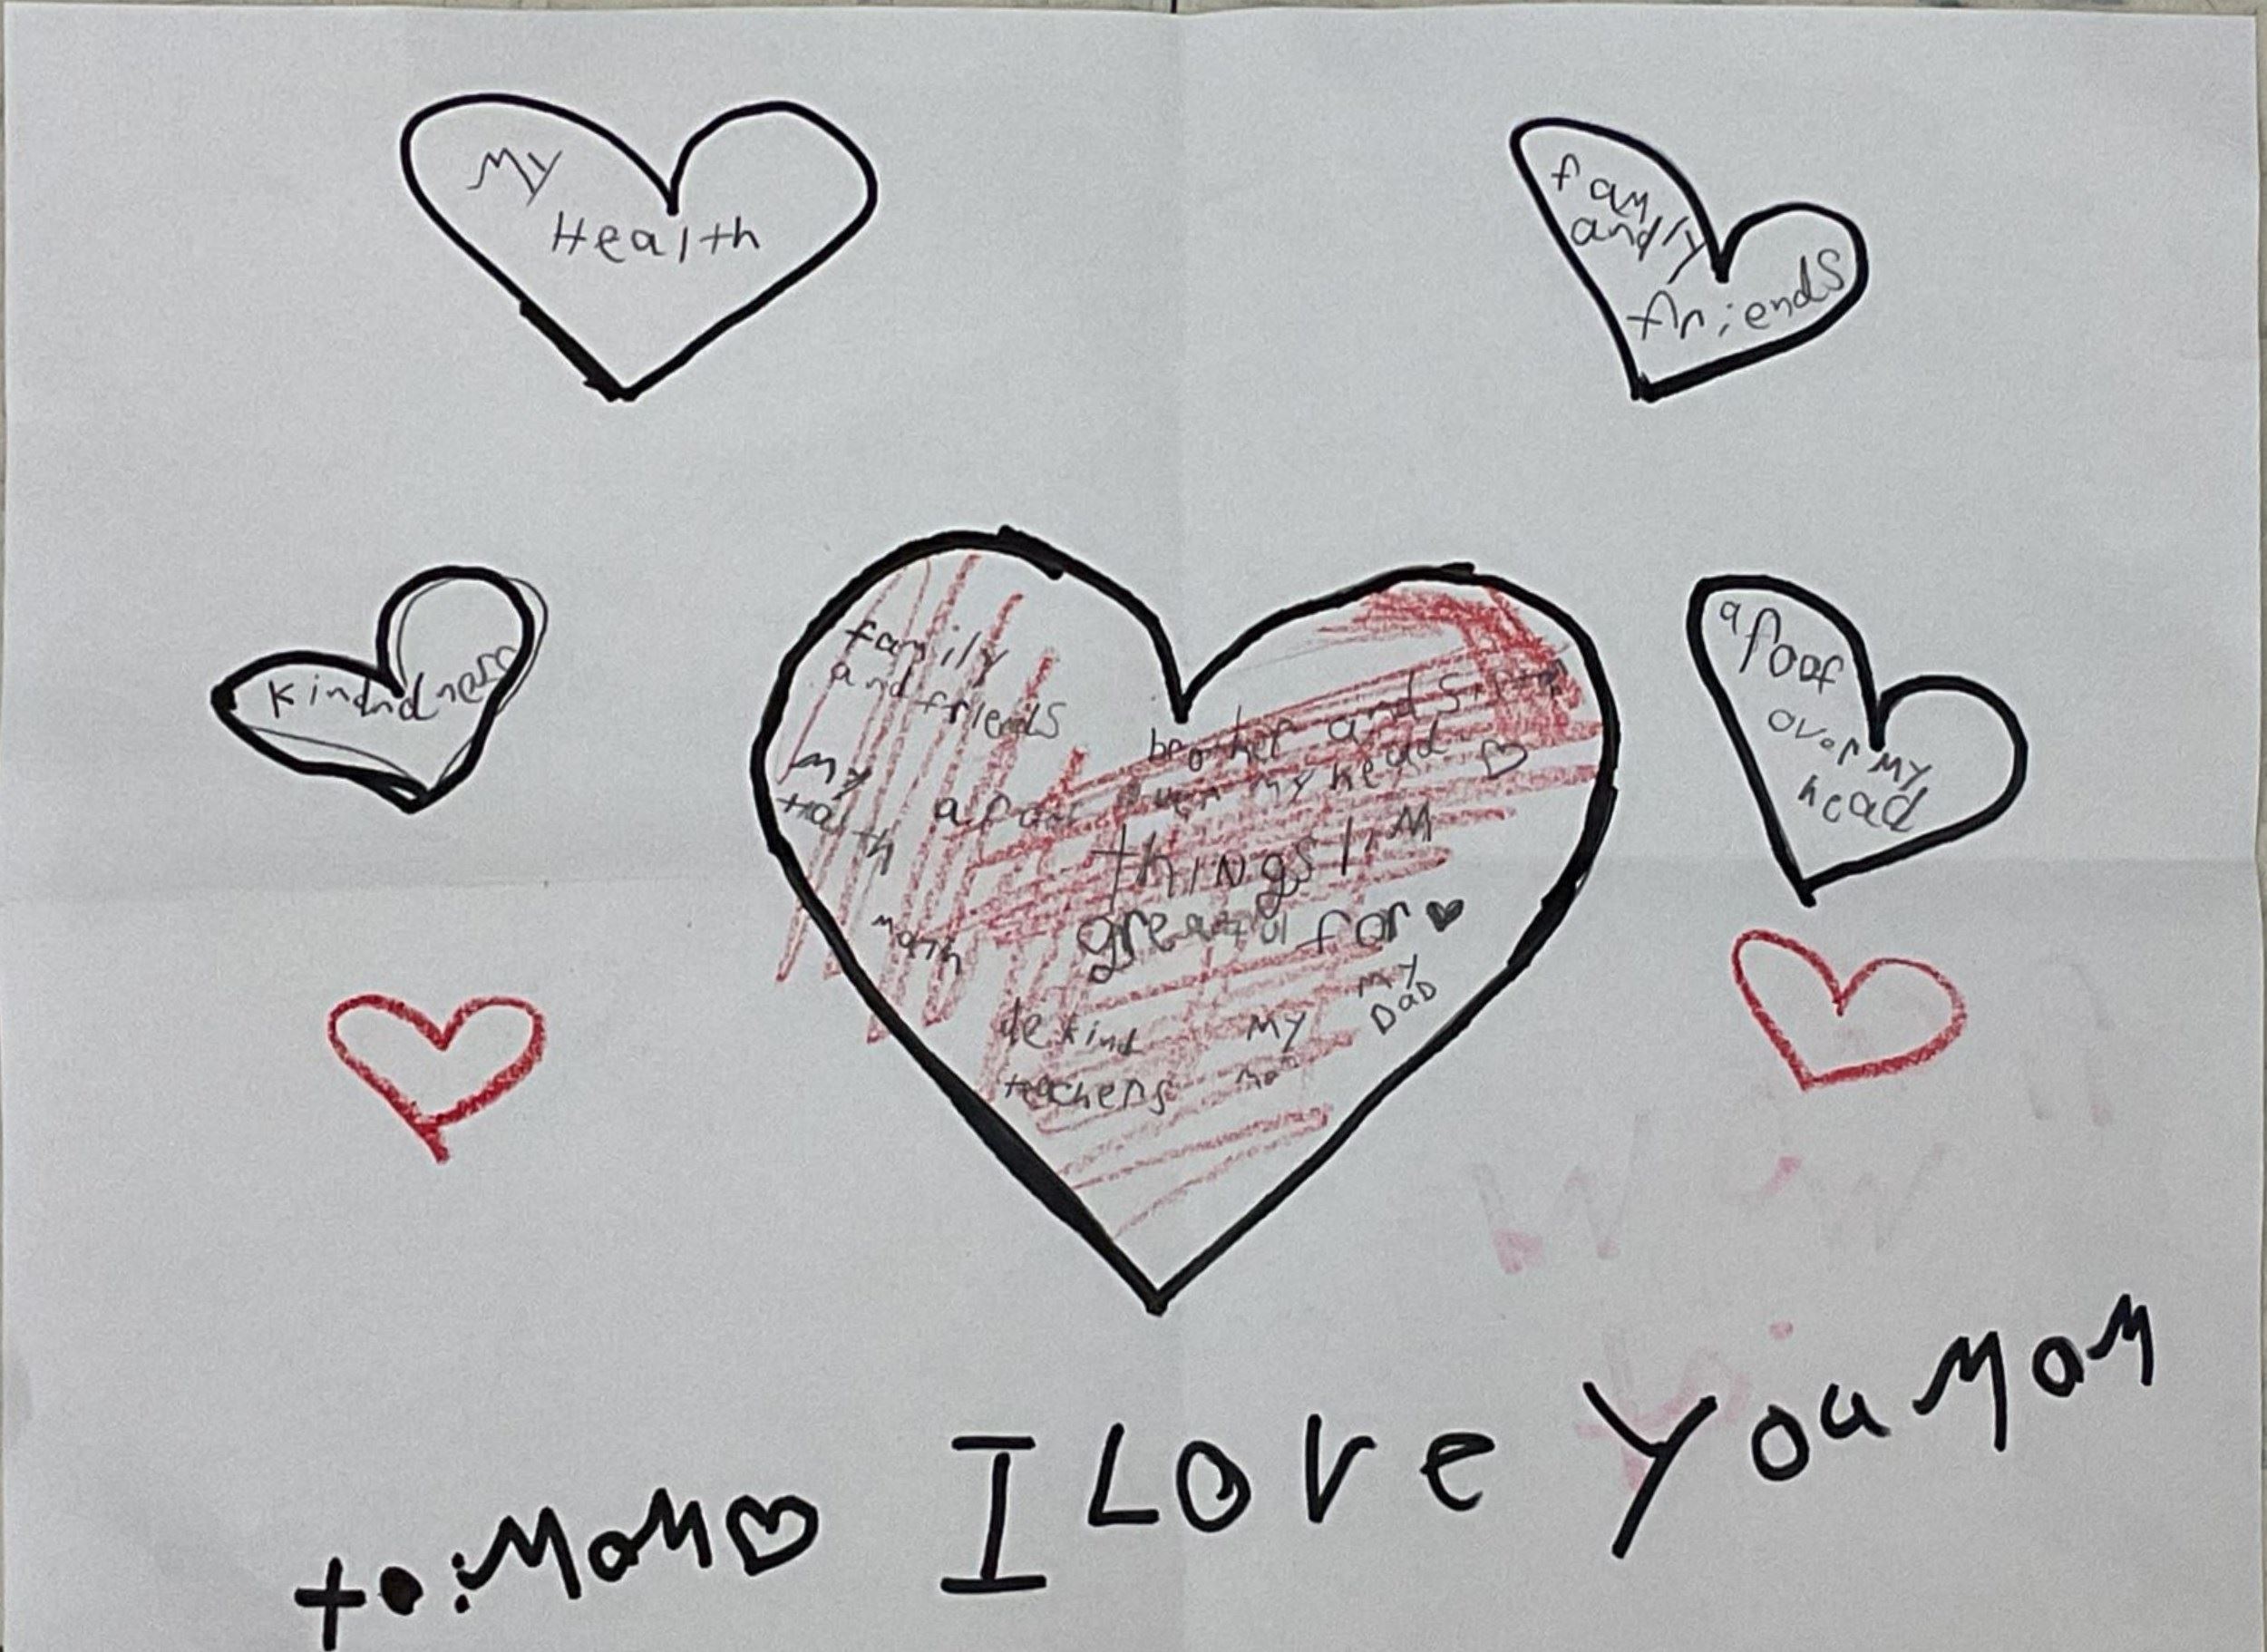 My
Health
family
and
friends
kindndness
family
and friends
brother and
My
Halth
a foof over my head
things I'M
greatful for
math
be kind
teachers
My
mom
My
DaD
a foof
over My
head
to: MoM
I Love You MoM